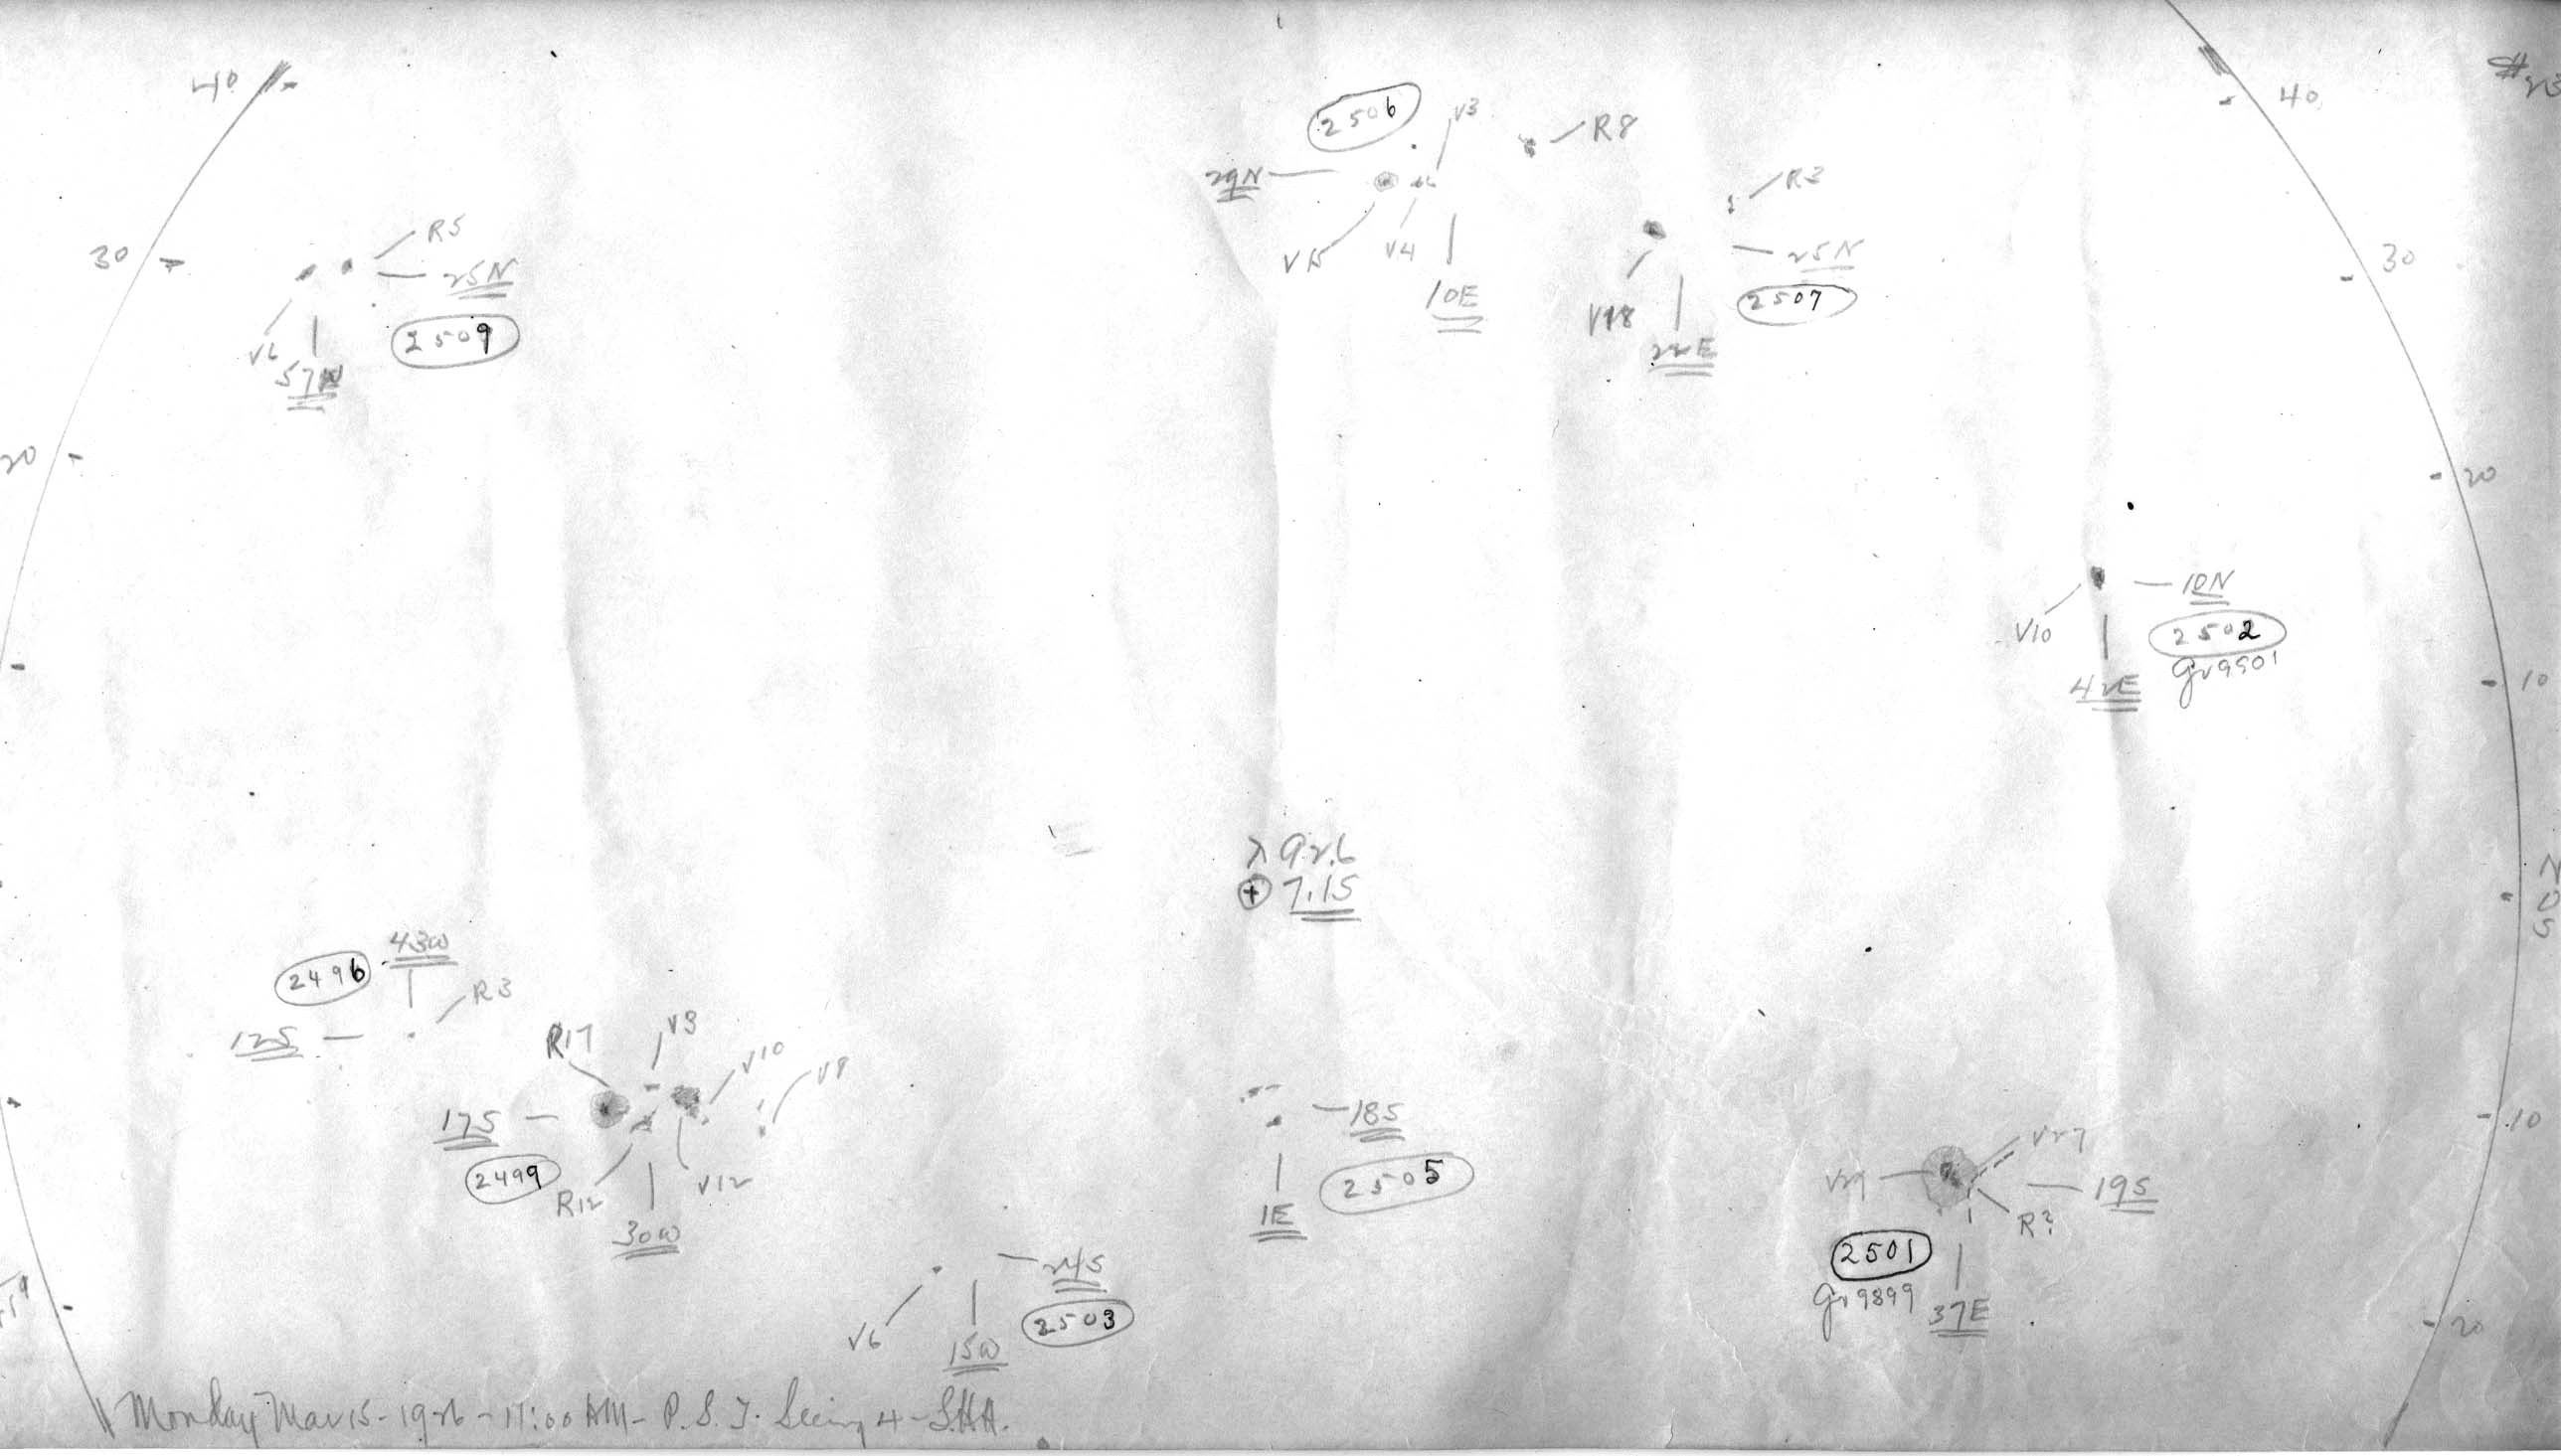 40
40
30
30
20
20
10
N
0
S
10
20
R5
25N
V6
57W
2509
2506
V3
R8
29N
V15
V4
10E
R3
25N
V18
2507
22E
V10
10N
2502
Gr 9901
42E
λ 92.6
⊕ 7.15
43W
2496
R3
12S
R17
V3
V10
V8
17S
2499
R12
V12
30W
18S
2505
1E
V6
24S
2503
15W
V29
V27
19S
R?
2501
Gr 9899
37E
Monday Mar 15 - 1926 - 11:00 AM - P.S.T. Seeing 4 - S.H.A.